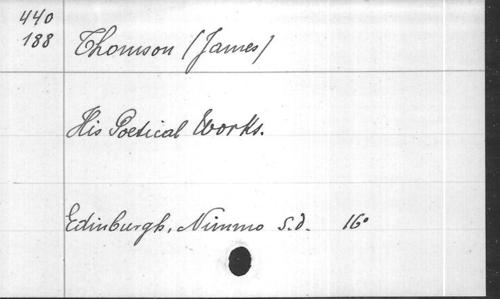 440
188
Thomson (James)
His Poetical Works.
Edinburgh, Nimmo s.d. 16°